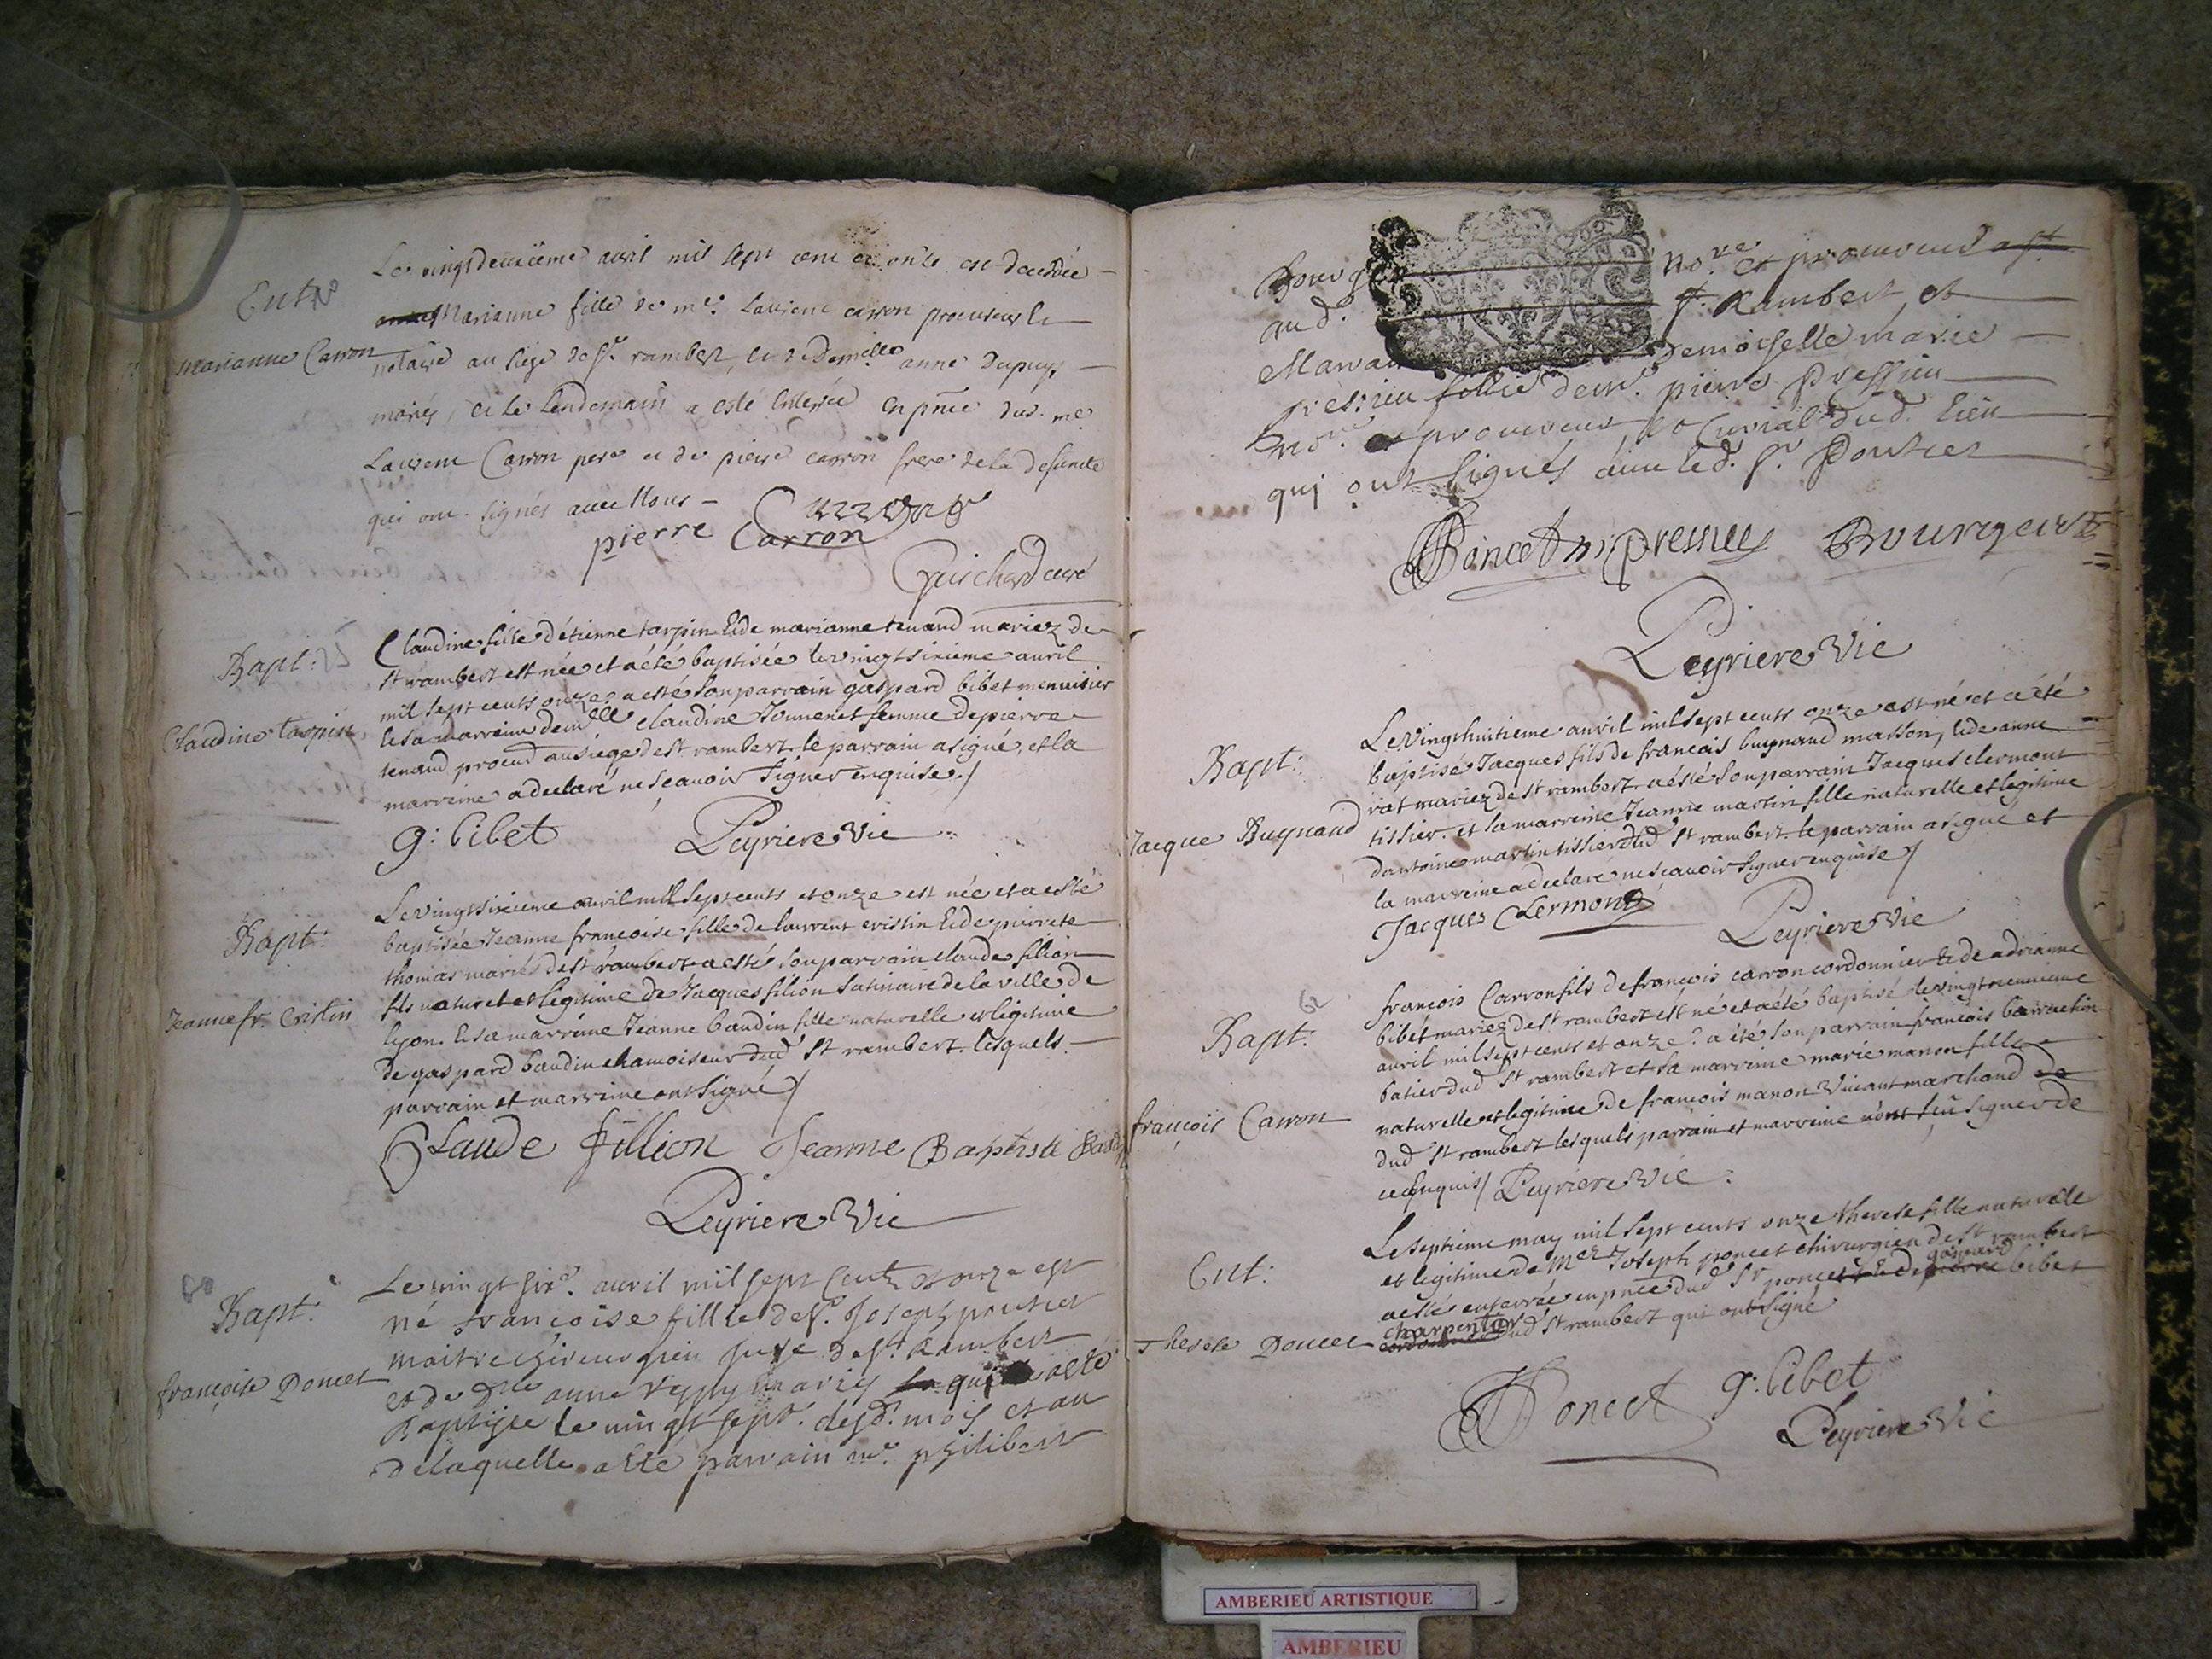 Entr
Marianne Carron
Le vingtdeuxième avril mil sept cent et onze est decedée
Marianne fille de me. Laurent carron procureur le
notaire au siège de st. rambert, et de demlle anne dupuys
mariés, et le lendemain a esté enterrée en pnce dud. me
Laurent Carron pere et de pierre carron frere de la defuncte
qui ont signés avec Nous
pierre Carron
Guichard curé
Bapt:
Claudine tarpin
Claudine fille d'étienne tarpin & de marianne tenand mariez de
st rambert est née et a été baptisée le vingt sixieme avril
mil sept cents onze, a esté son parrain gaspard bibet menuisier
& sa marreine demlle claudine Jonnenet femme de pierre
tenand procud au siege de st rambert. le parrain a signé, et la
marreine a declaré ne scavoir signer enquise./
g: bibet Peyriere Vic
Bapt:
Jeanne fr. Cristin
Le vingt sixieme avril mil sept cents et onze est née et a esté
baptisée Jeanne francoise fille de laurent cristin & de pierrete
thomas mariés de st rambert a esté son parrain claude filion
fils naturel et legitime de Jacques filion satinaire de la ville de
lyon. & sa marreine Jeanne baudin fille naturelle et legitime
de gaspard baudin chamoiseur dud st rambert. lesquels
parrain et marreine ont signé/
Claude fillion Jeanne Baptiste
Peyriere Vic
Bapt:
françoise Poncet
Le vingt six.e avril mil sept Centz et onze est
né francoise fillie de sr. Joseph poncet
maitre chirurgien juré de st. Rambert
et de dlle anne mariés qui a esté
Baptisée le vingt sept.e desd. mois et an
de laquelle a esté parrain me. philibert
Bourgeois nore et procureur
au d. st. Rambert et
Marraine demoiselle marie
pressieu fillie de mr. pierre Pressieu
nore. et procureur et Curial dud. lieu
qui ont signés avec led. sr Poncet
Poncet m pressieu Bourgeois
Peyriere Vic
Bapt:
Jacque Bugnand
Le vingthuitieme avril mil sept cents onze est né et a été
baptisé Jacques fils de francois bugnand masson, & de anne
rat mariez de st rambert. a esté son parrain Jacques clermont
tissier. et sa marreine Jeanne martin fille naturelle et legitime
dantoine martin tissier dud st rambert. le parrain a signé et
la marreine a declaré ne scavoir signer enquise/
Jacques Clermont Peyriere Vic
Bapt:
françois Carron
francois Carron fils de francois carron cordonnier & de adrianne
bibet mariez de st rambert est né et a été baptisé le vingt neuvieme
avril mil sept cents et onze. a été son parrain francois barruchin
batier dud st rambert et sa marreine marie manon fille
naturelle et legitime de francois manon vivant marchand de
dud st rambert lesquels parrain et marreine n'ont sçu signer de
ce enquis/ Peyriere Vic.
Ent:
Therese Poncet
Le septieme may mil sept cents onze therese fille naturelle
et legitime de Mre Joseph poncet chirurgien de st rambert
a esté enterrée en pnce dud Sr poncet & de pierre gaspard bibet
charpentier dud st rambert qui ont signé
Poncet g: bibet
Peyriere Vic
AMBERIEU ARTISTIQUE
AMBERIEU